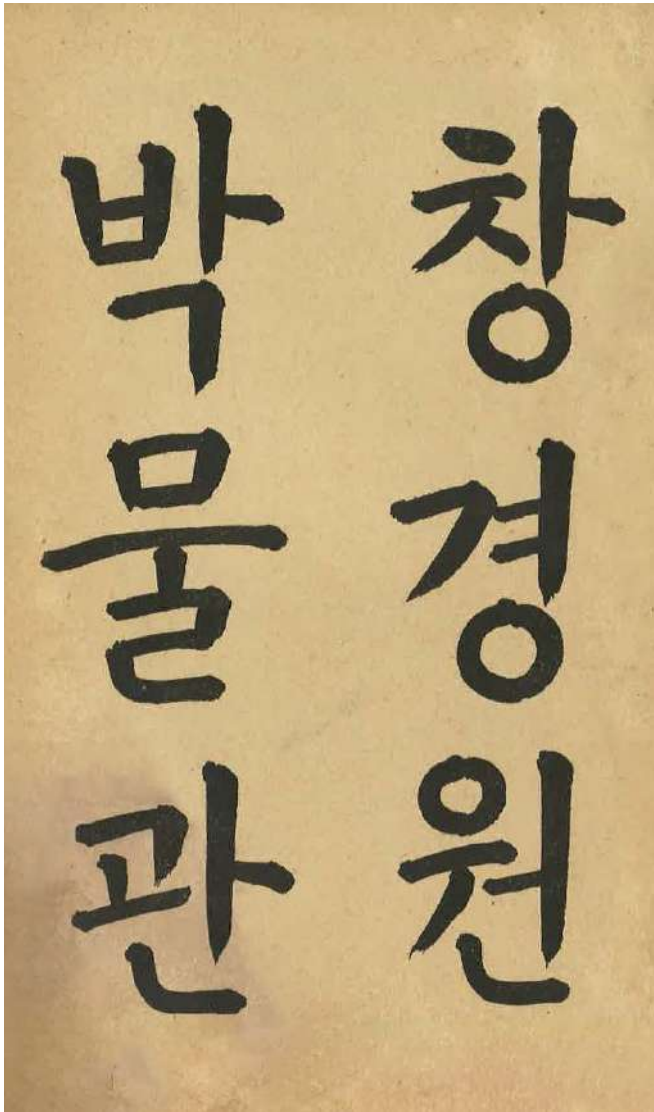 창경원
박물관